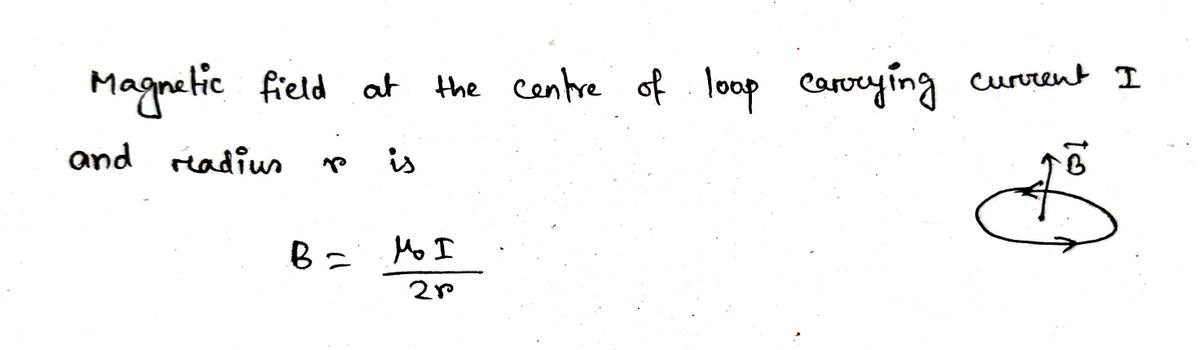 Magnetic field at the centre of loop carrying current I
and radius r is
B⃗
B = μ₀ I / 2r